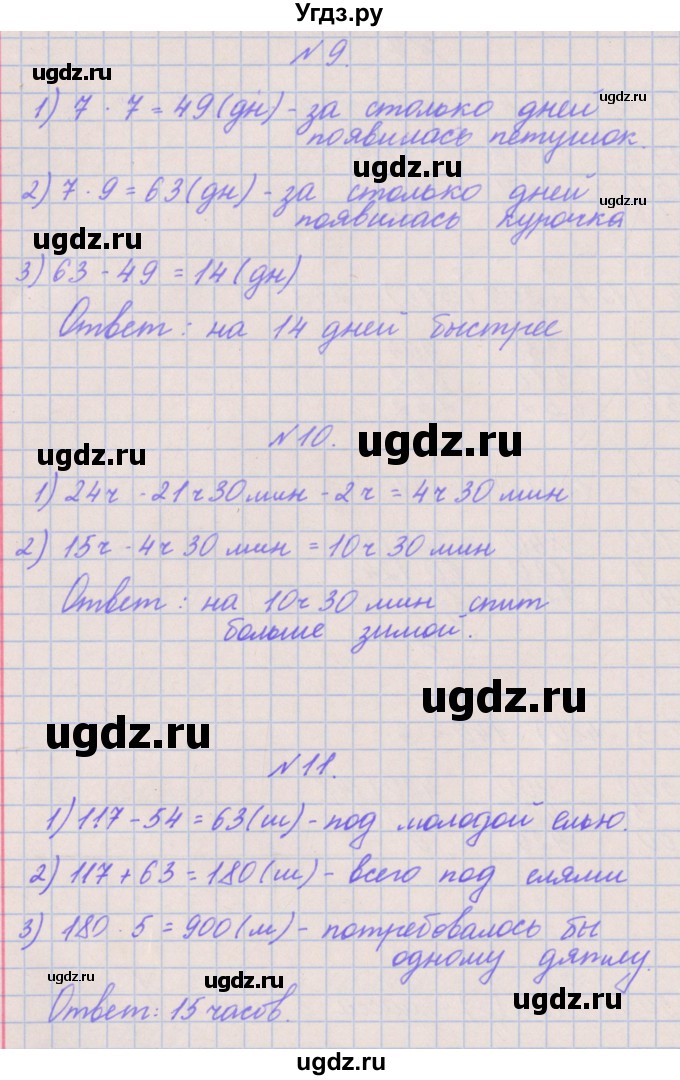 Угдз.ру
№9.
ugdz.ru
ugdz.ru
1) 7 · 7 = 49 (дн) - за столько дней
появилась петушок.
ugdz.ru
2) 7 · 9 = 63 (дн) - за столько дней
ugdz.ru
появилась курочка
ugdz.ru
3) 63 - 49 = 14 (дн)
Ответ: на 14 дней быстрее
№10.
ugdz.ru
ugdz.ru
1) 24ч - 21ч 30 мин - 2ч = 4ч 30 мин
2) 15ч - 4ч 30 мин = 10ч 30 мин
Ответ: на 10ч 30 мин спит
больше зимой.
ugdz.ru
ugdz.ru
№11.
1) 117 - 54 = 63 (ш) - под молодой елью.
2) 117 + 63 = 180 (ш) - всего под елями
3) 180 · 5 = 900 (м) - потребовалось бы
одному дятлу.
ugdz.ru
ugdz.ru
ugdz.ru
Ответ: 15 часов.
ugdz.ru